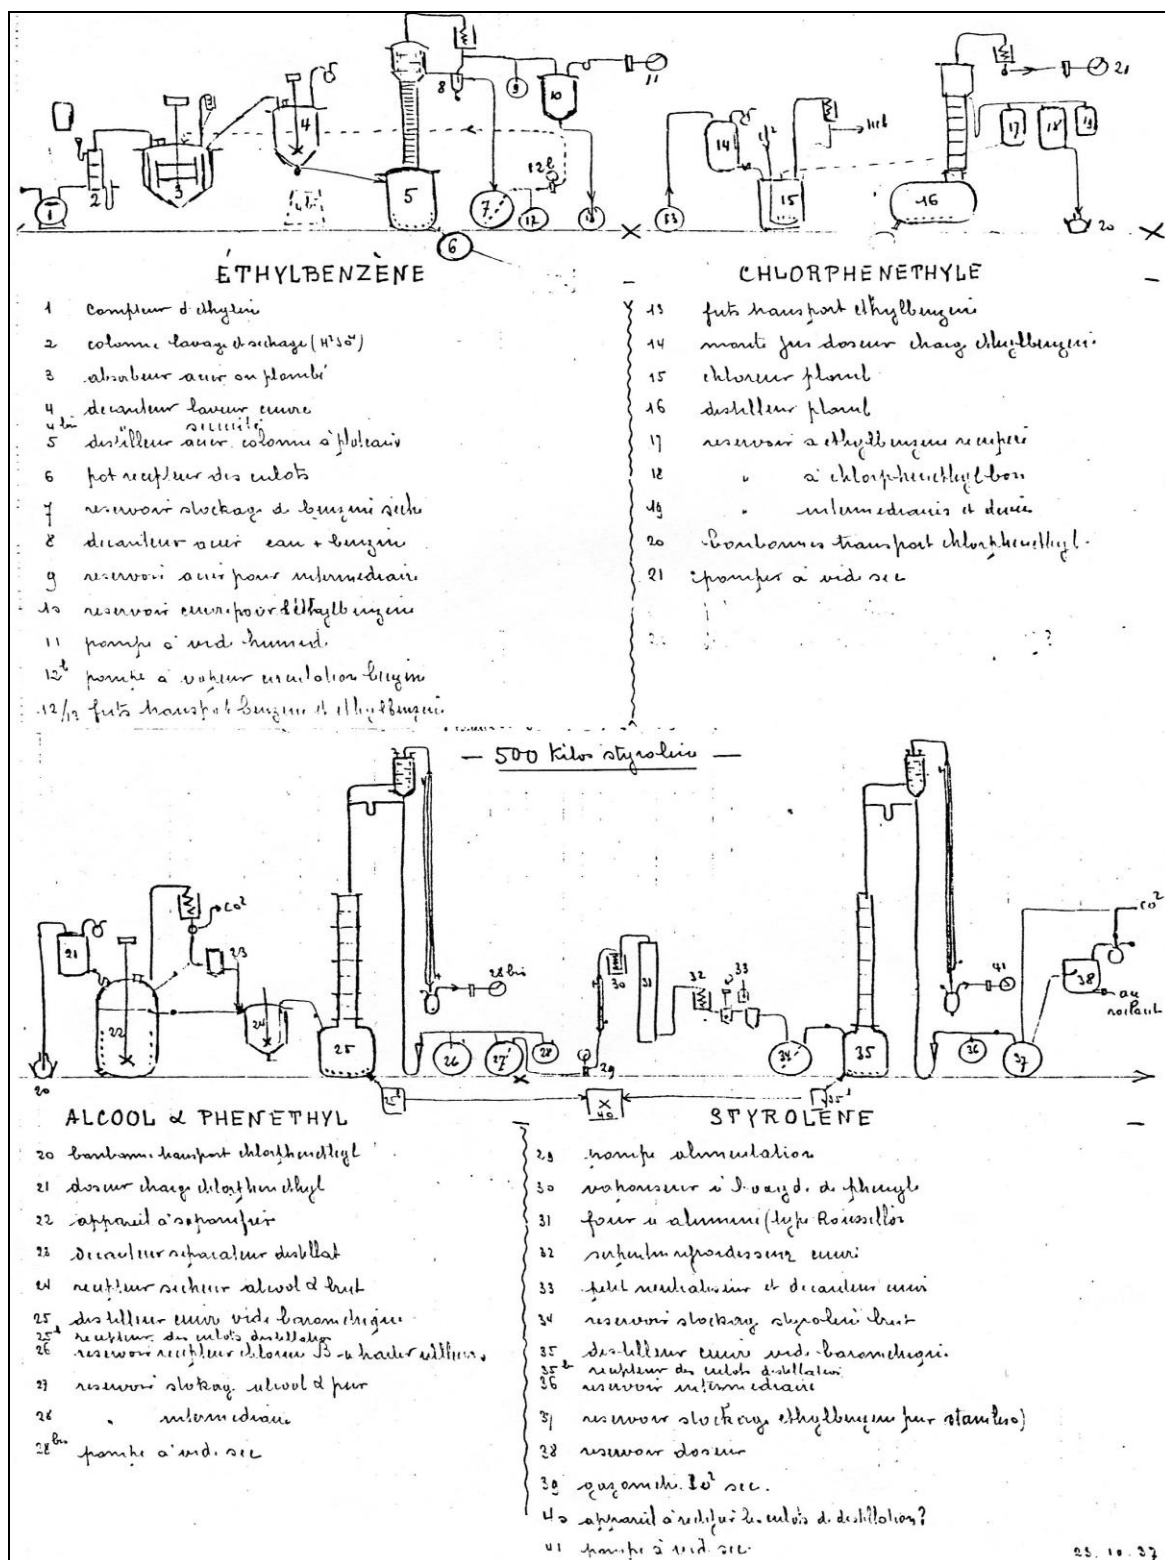 ÉTHYLBENZÈNE
1 compteur d'ethylene
2 colonne lavage et sechage (H²SO⁴)
3 absorbeur acier ou plombé
4 decanteur laveur cuivre
4 bis securité
5 distilleur acier colonne à plateaux
6 pot recepteur des culots
7 reservoir stockage de benzine seche
8 decanteur acier eau + benzine
9 reservoir acier pour intermediaire
10 reservoir cuivre pour l'éthylbenzene
11 pompe à vide humide
12b pompe à vapeur circulation benzine
12/13 futs transport benzine et ethylbenzene
CHLORPHENETHYLE
13 futs transport ethylbenzene
14 monte jus doseur charge ethylbenzene
15 chloreur plomb
16 distilleur plomb
17 reservoir a ethylbenzene recuperé
18 " à chlorphenethyl bon
19 " intermediaires et
20 Bonbonnes transport chlorphenethyl.
21 pompes à vide sec
— 500 Kilos styrolene —
ALCOOL α PHENETHYL
20 bonbonne transport chlorphenethyl
21 doseur charge chlorphenethyl
22 appareil à saponifier
23 decanteur separateur distillat
24 recepteur secheur alcool α brut
25 distilleur cuivre vide barometrique
25b recepteur des culots distillation
26 reservoir recepteur chlorure B
27 reservoir stockage alcool α pur
28 " intermediaire
28 bis pompe à vide sec
STYROLÈNE
29 pompe alimentation
30 vaporiseur à l'oxyde de phenyle
31 four a alumine (type Roussillon
32 serpentin refroidisseur cuivre
33 petit neutraliseur et decanteur cuivre
34 reservoir stockage styrolene brut
35 distilleur cuivre vide barometrique
35b recepteur des culots distillation
36 reservoir intermediaire
37 reservoir stockage ethylbenzene pur stainless)
38 reservoir doseur
39 gazometre CO² sec.
40 appareil à rectifier les culots de distillation?
41 pompe à vide sec.
23.10.37